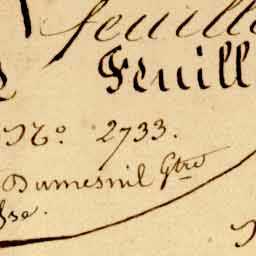 feuille
Feuill
N.º 2733.
Dumesnil G.tre
sse.